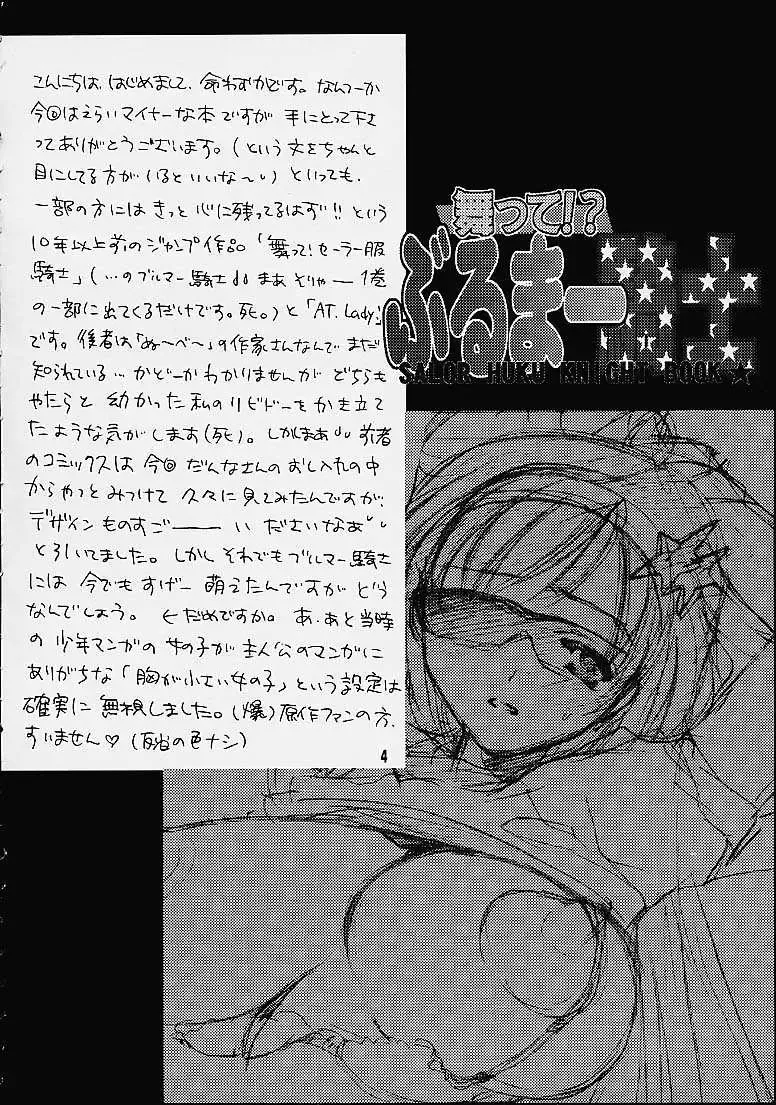 こんにちは、はじめまして、命わずかです。なんつーか
今回はえらいマイナーな本ですが 手にとって下さ
ってありがとうございます。(という文をちゃんと
目にしてる方がいるといいな〜) といっても、
一部の方には きっと 心に残ってるはず!! という
10年以上前のジャンプ作品「舞って!セーラー服
騎士」(…のブルマー騎士 まあ そりゃー 1巻
の一部に出てくるだけです。死。)と「AT. Lady」
です。後者は「ぬ〜べ〜」の作家さんなんで まだ
知られている…かどーか わかりませんが どちらも
やたらと 幼かった 私のリビドーを かき立て
たような気がします(死)。しかしまあ 前者
のコミックスは 今回 だんなさんの おし入れの中
からやっと みつけて 久々に 見てみたんですが、
デザイン ものすごーーー い ださいなあ
とろいてました。しかし それでも ブルマー騎士
には 今でも すげー 萌えたんですが どう
なんでしょう。 ←だめですか。あ、あと 当時
の 少年マンガの 女の子が 主人公のマンガに
ありがちな「胸が小さい女の子」という設定は
確実に 無視しました。(爆)原作ファンの方、
すいません♡ (反省の色ナシ)
4
舞って!?
ぶるまー騎士
SALOR HUKU KNIGHT BOOK★